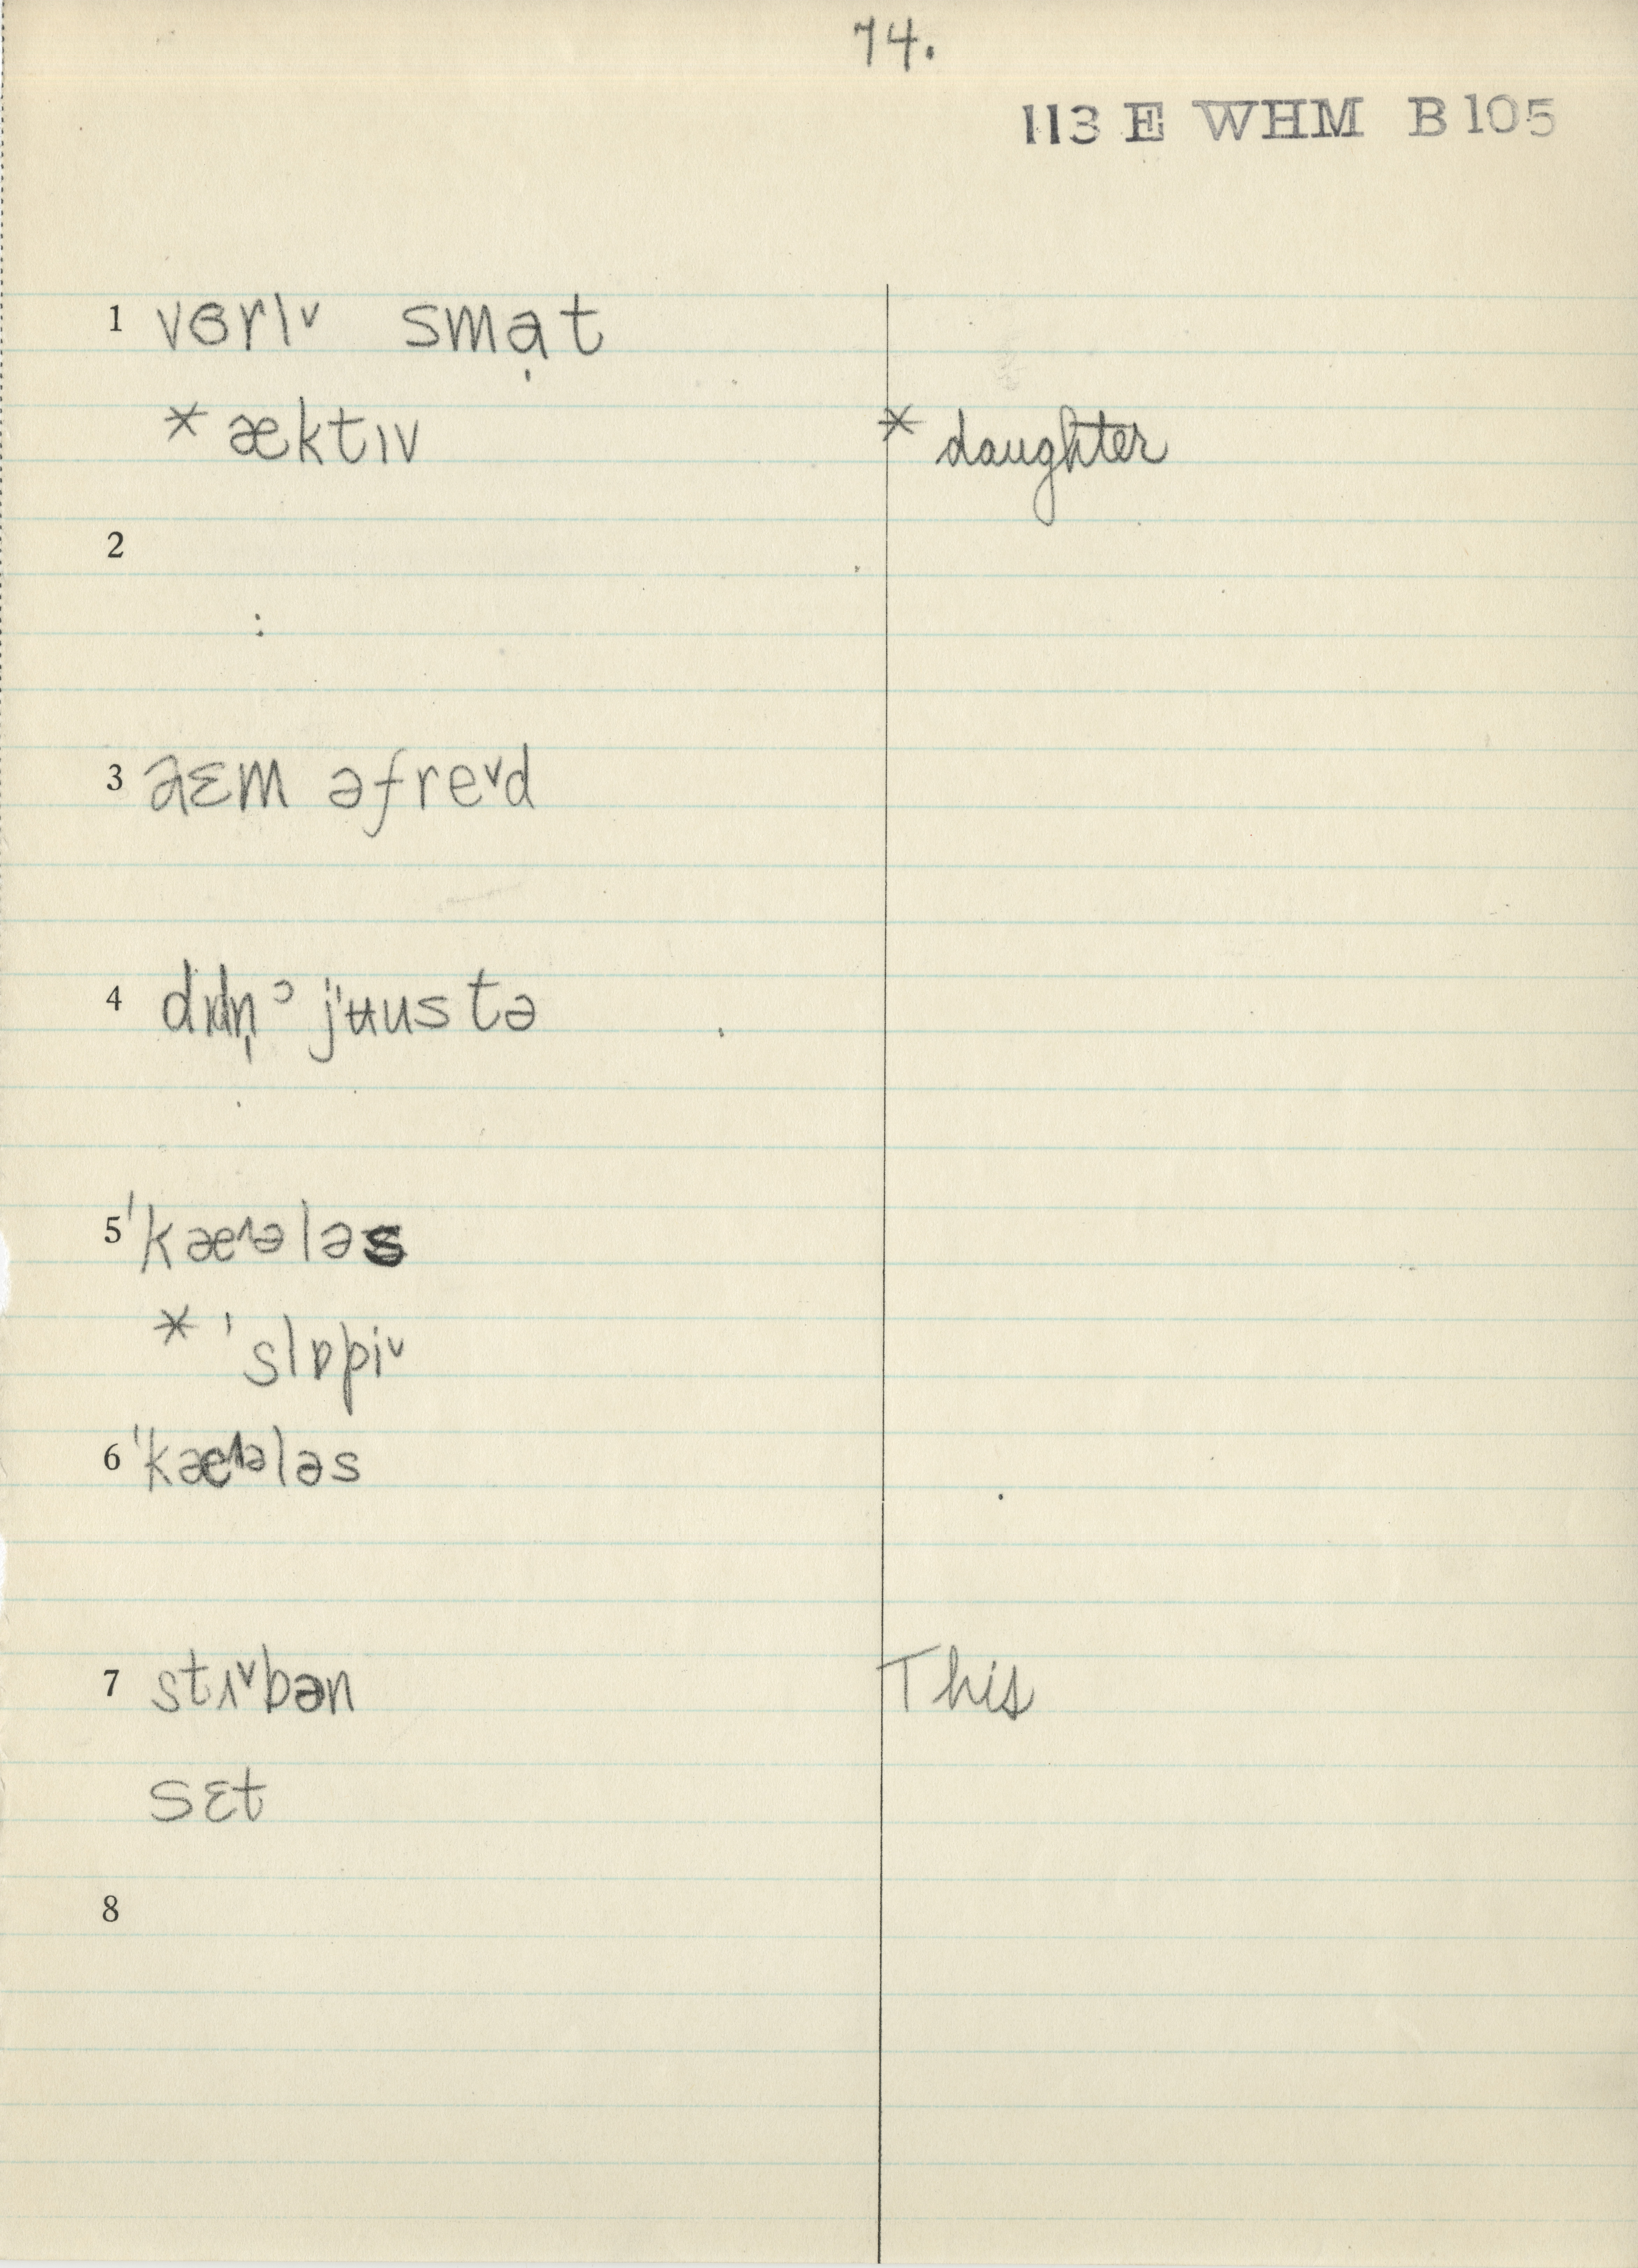 74.
113 E WHM B105
1 vɞrI˅ sma̩t
* æktɪv * daughter
2
3 aɛm əfre˅d
4 dɪdn̩ʾ jʉust ə
5 ˈkæ^ələs
* ˈslɒpi˅
6 ˈkæ^ələs
7 stɪ˅bən This
sɛt
8